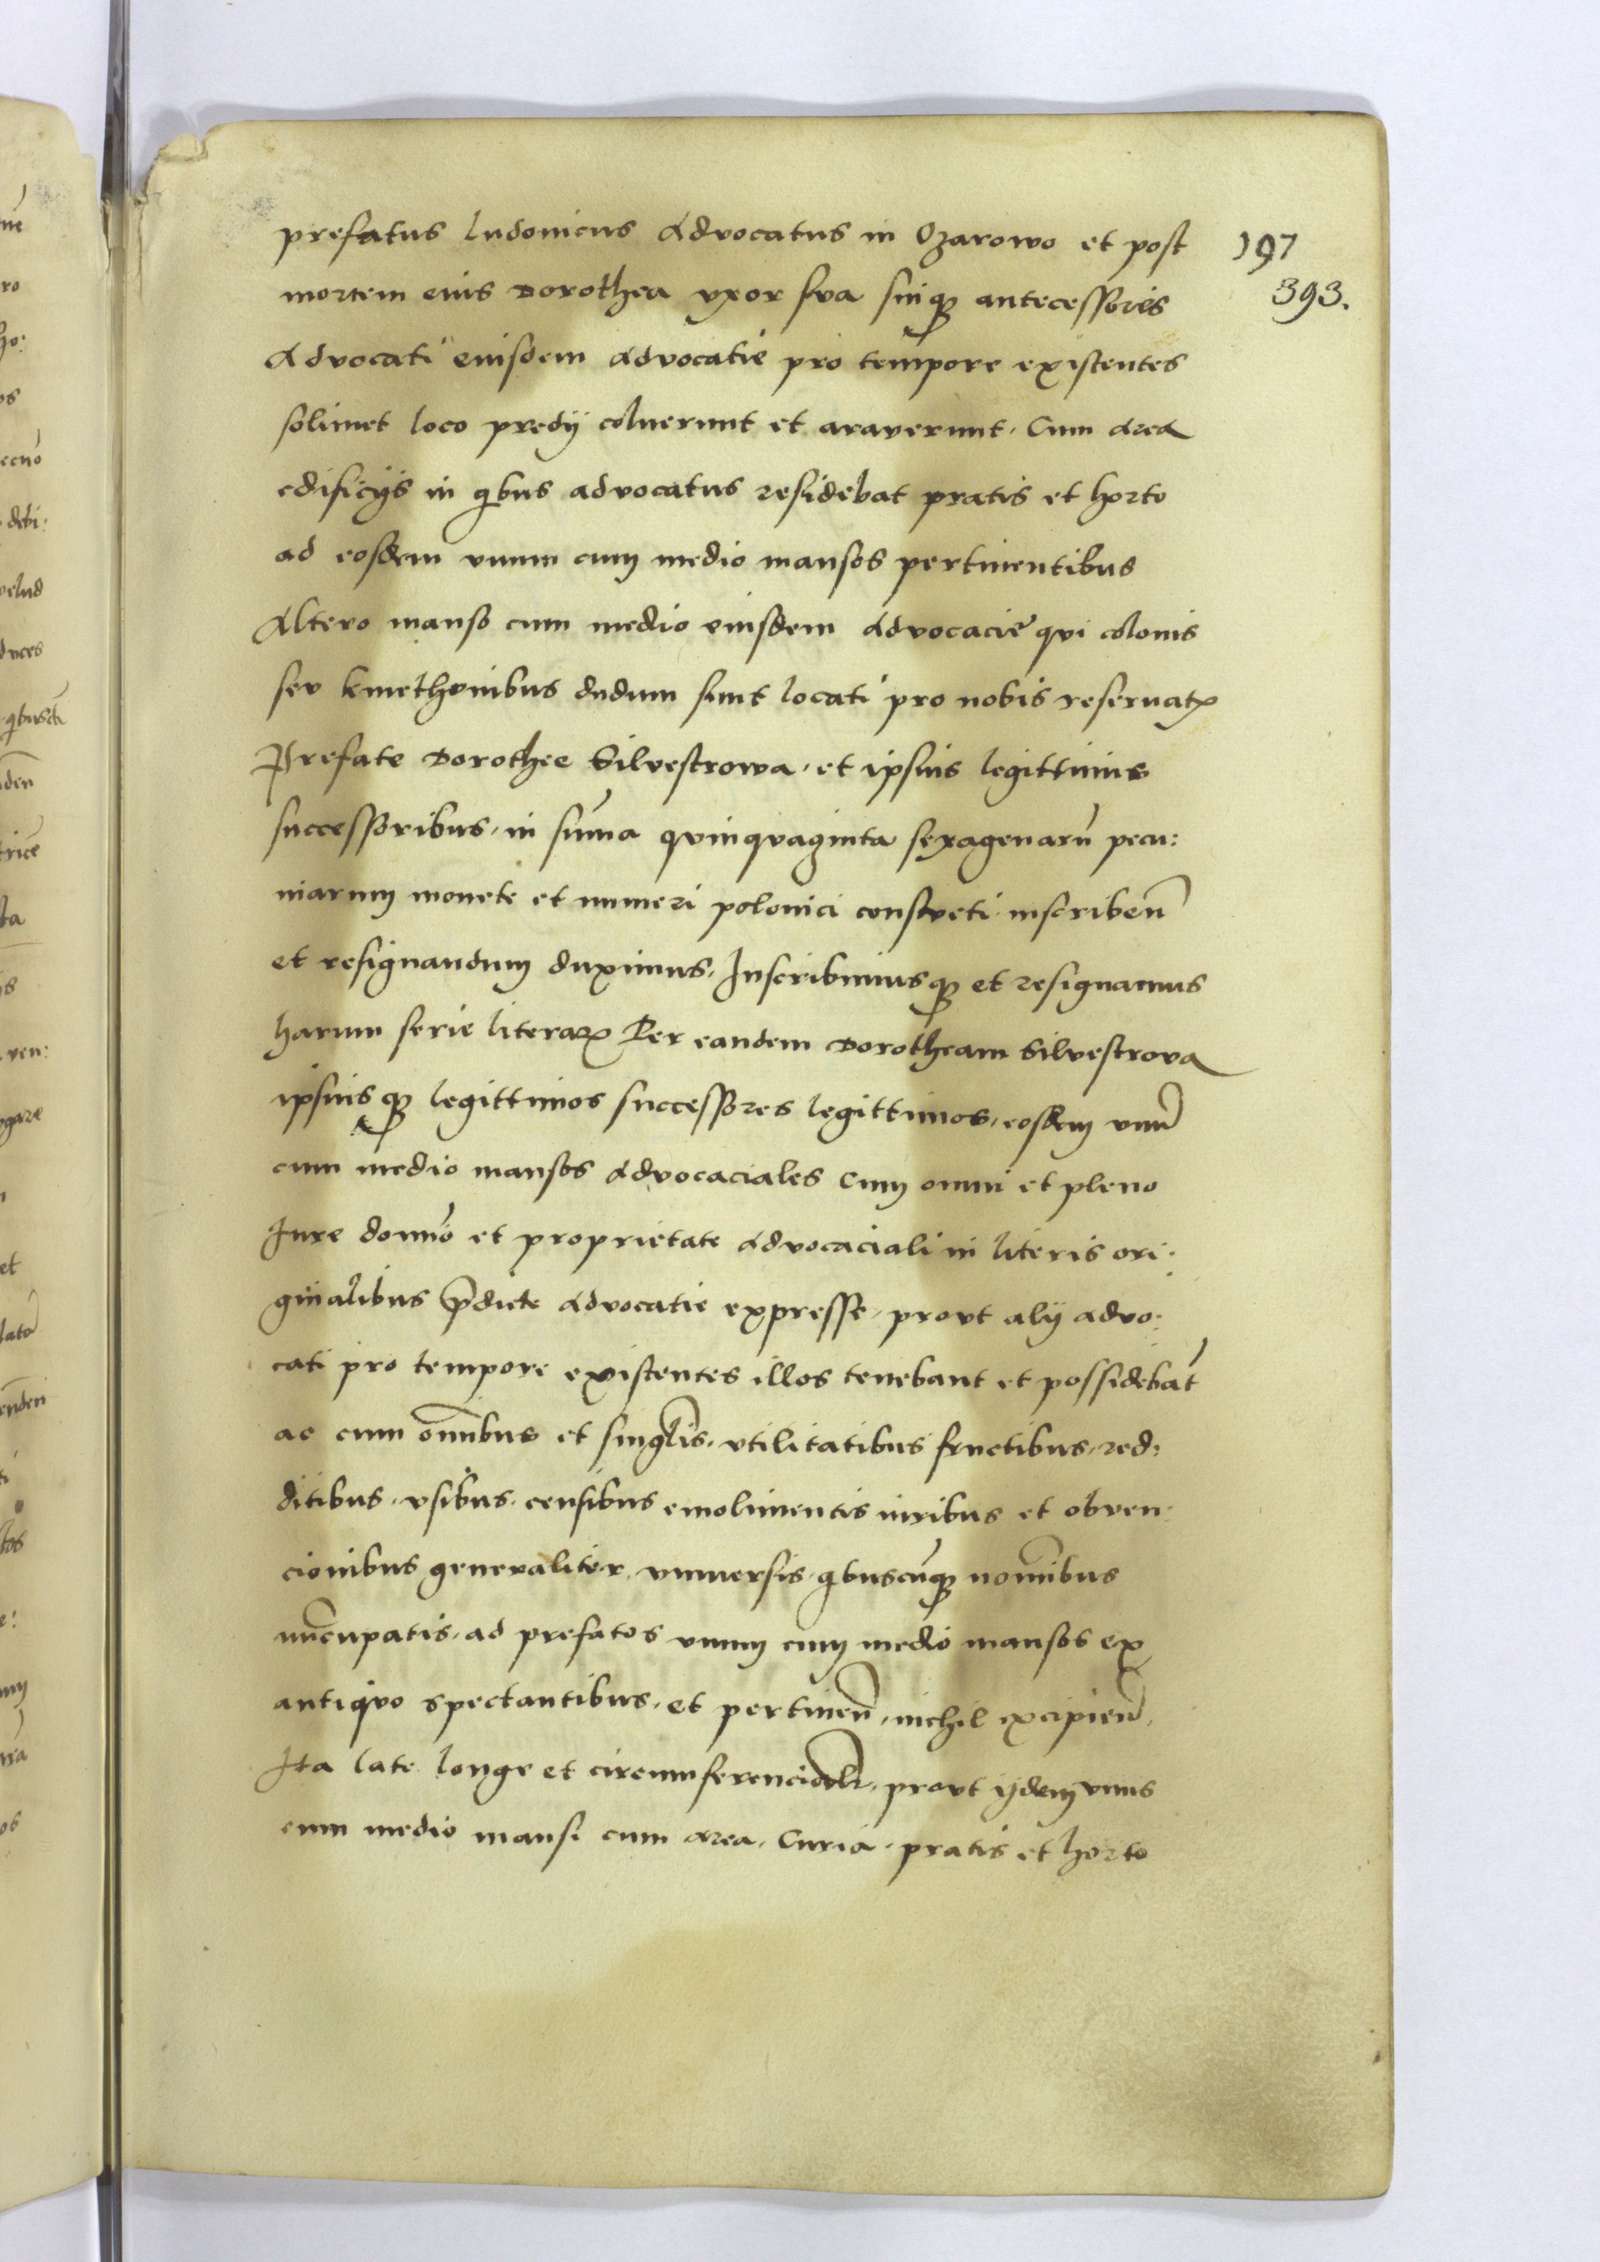 prefatus ludouicus Advocatus in Ozarowo et post
197
mortem eius Dorothea vxor sva suiq₃ antecessores
393.
Advocati eiusdem Advocatie pro tempore existentes
solimet loco predij coluerunt et araverunt. Cum area
edificijs in qbus advocatus residebat pratis et horto
ad eosdem vnum cum medio mansos pertinentibus
Altero manso cum medio eiusdem Advocacie qvi colonis
sev kmethonibus dudum sunt locati pro nobis reservatꝭ
Prefate Dorothee Silvestrowa, et ipsius legittimis
successoribus, in sum̄a qvinqvaginta sexagenarū pecu:
niarum monete et numeri polonici consveti inscriben̄
et resignandum duximus, Inscribimusq₃ et resignamus
harum serie literaꝝ Per eandem Dorotheam Silvestrova
ipsiusq₃ legittimos successores legittimos, eosdem vnū
cum medio mansos Advocaciales Cum omni et pleno
Iure domīo et proprietate Advocaciali in literis ori:
ginalibus p̄dicte Advocatie expresse, provt alij advo:
cati pro tempore existentes illos tenebant et possidebāt
ac cum om̄ibus et singl̄is, vtilitatibus fructibus, red:
ditibus, vsibus, censibus emolimentis iuribus et obven:
cionibus generaliter vniversis, qbuscūq₃ nom̄ibus
nūcupatis, ad prefatos vnum cum medio mansos ex
antiqvo spectantibus, et pertinen̄, nichil excipien̄,
Ita late longe et circumferencial̄r, provt ijdem vnus
cum medio mansi cum area, Curia, pratis et horto